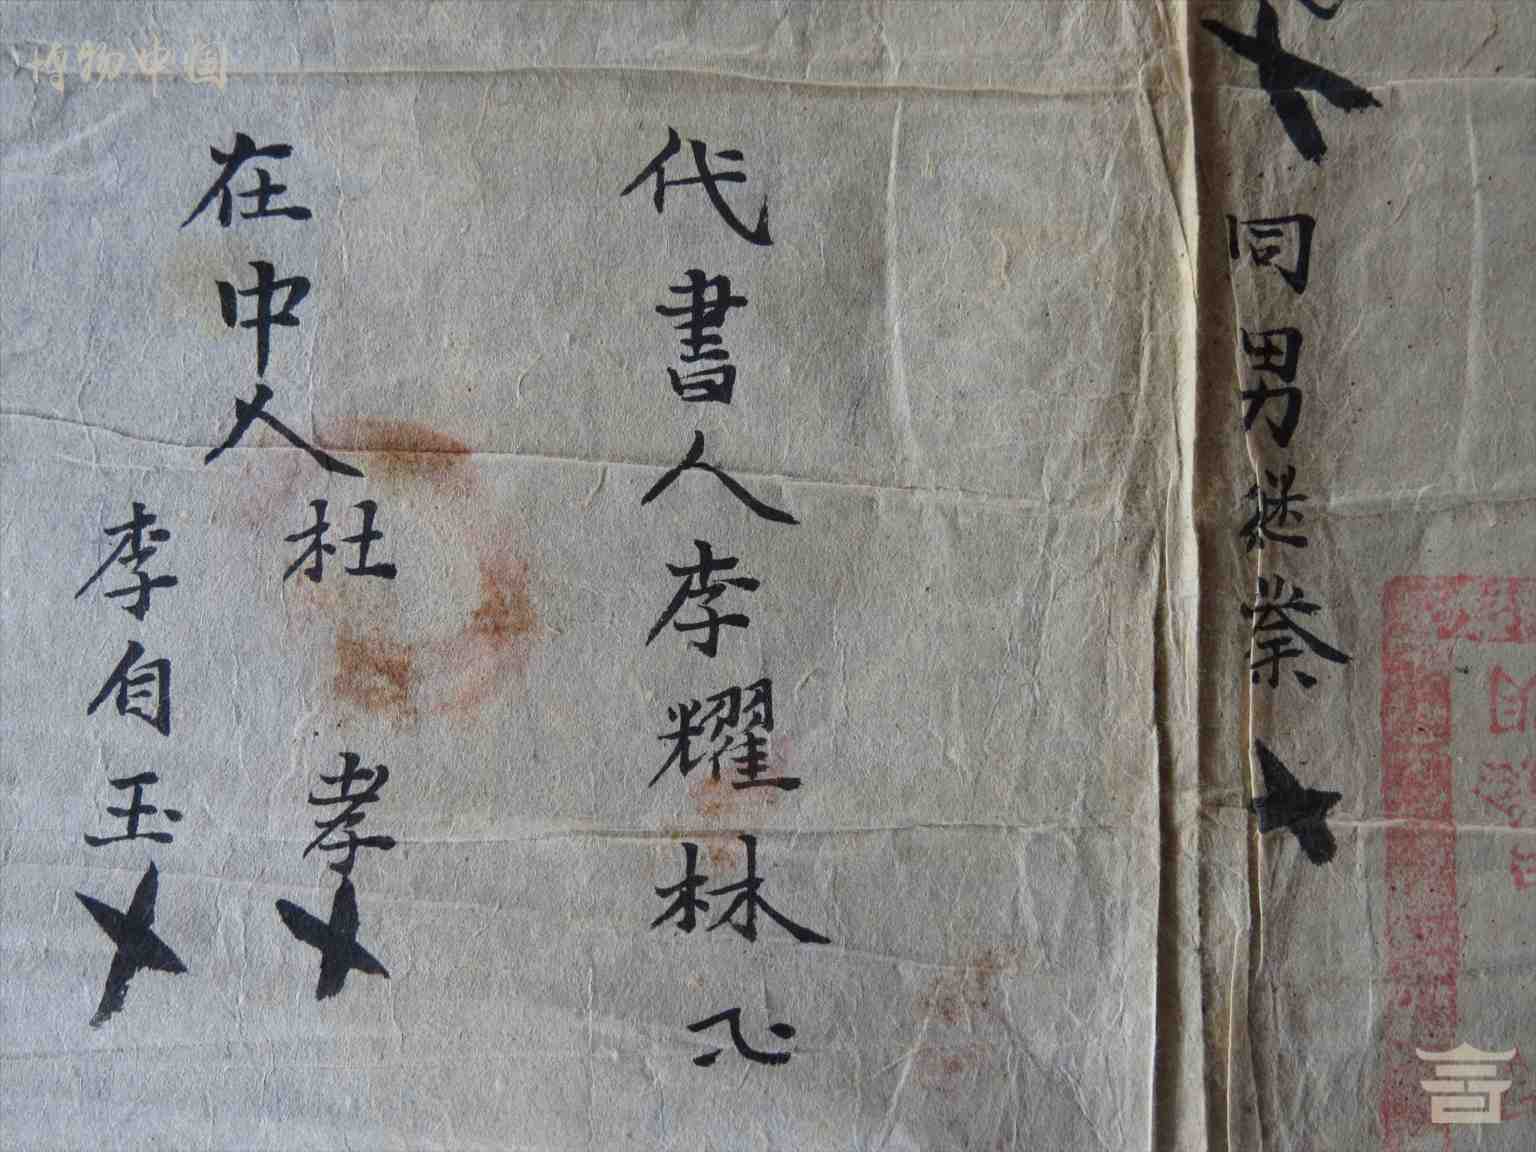 同男继業
代書人李耀林
在中人杜孝
李自玉
博物中国